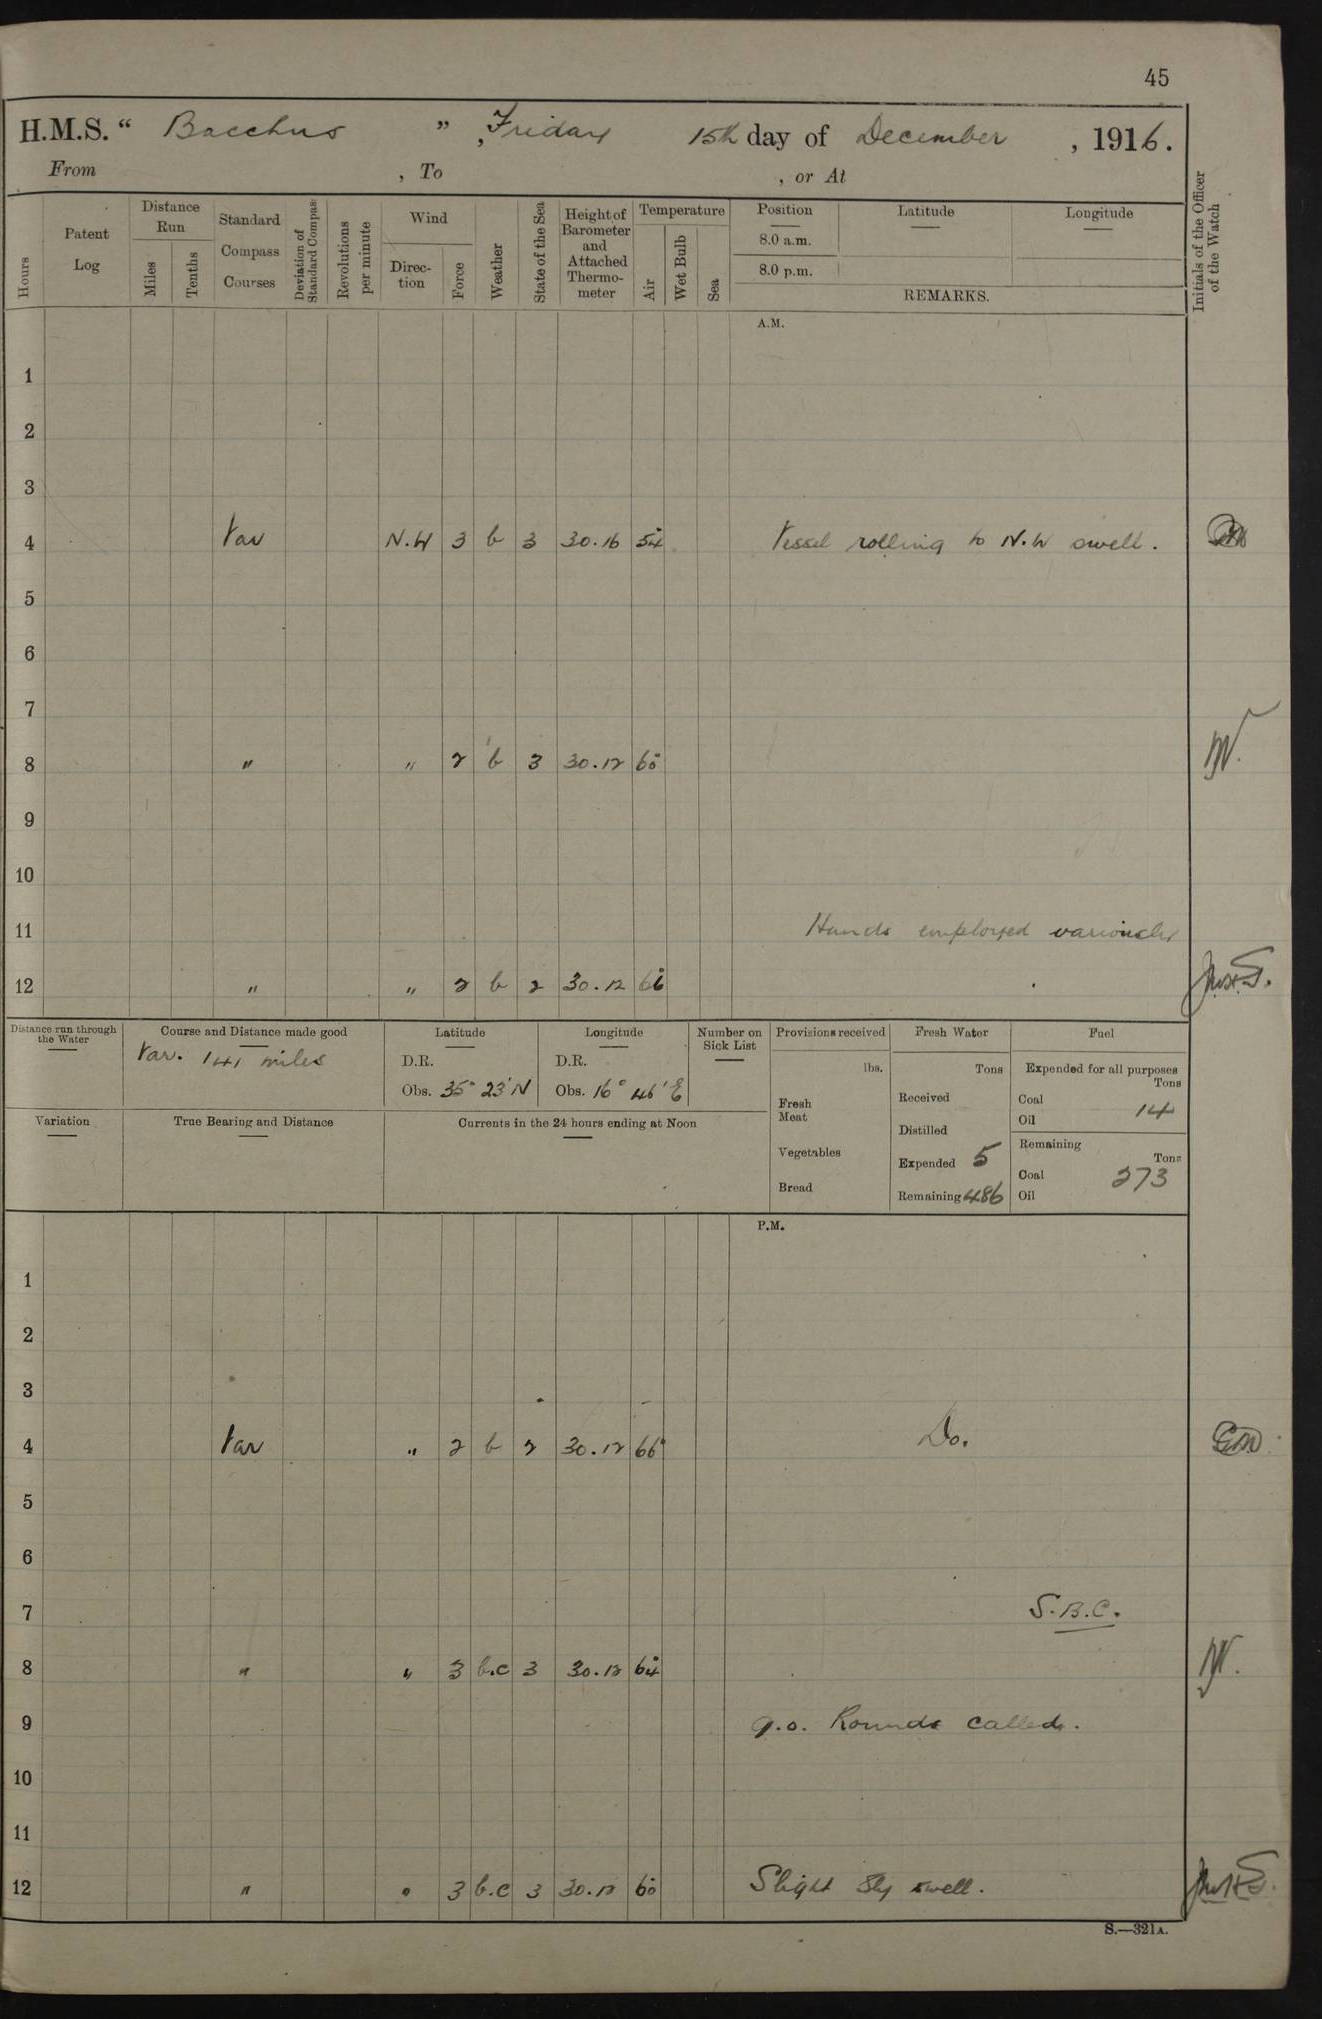 45
H.M.S. “ Bacchus ” , Friday 15th day of December , 1916.
From , To , or At
Hours
Patent Log
Distance Run
Miles
Tenths
Standard Compass Courses
Deviation of Standard Compass
Revolutions per minute
Wind
Direc-tion
Force
Weather
State of the Sea
Height of Barometer and Attached Thermo-meter
Temperature
Air
Wet Bulb
Sea
Position
8.0 a.m.
8.0 p.m.
Latitude
Longitude
REMARKS.
Initials of the Officer of the Watch
A.M.
1
2
3
4 Var N.W 3 b 3 30.16 54 Vessel rolling to N.W swell.
5
6
7
8 " " 2 b 3 30.12 60
9
10
11 Hands employed variously
12 " " 2 b 2 30.12 66
Distance run through the Water
Course and Distance made good
Var. 141 miles
Latitude
D.R.
Obs. 35° 23' N
Longitude
D.R.
Obs. 16° 46' E
Number on Sick List
Provisions received
lbs.
Fresh Meat
Vegetables
Bread
Fresh Water
Tons
Received
Distilled
Expended 5
Remaining 486
Fuel
Expended for all purposes
Tons
Coal 14
Oil
Remaining
Tons
Coal 273
Oil
Variation
True Bearing and Distance
Currents in the 24 hours ending at Noon
P.M.
1
2
3
4 Var " 2 b 2 30.12 66° Do.
5
6
7 S.B.C.
8 " " 3 b.c 3 30.12 64
9 9.0. Rounds called.
10
11
12 " " 3 b.c 3 30.12 60 Slight Sly swell.
S.—321A.